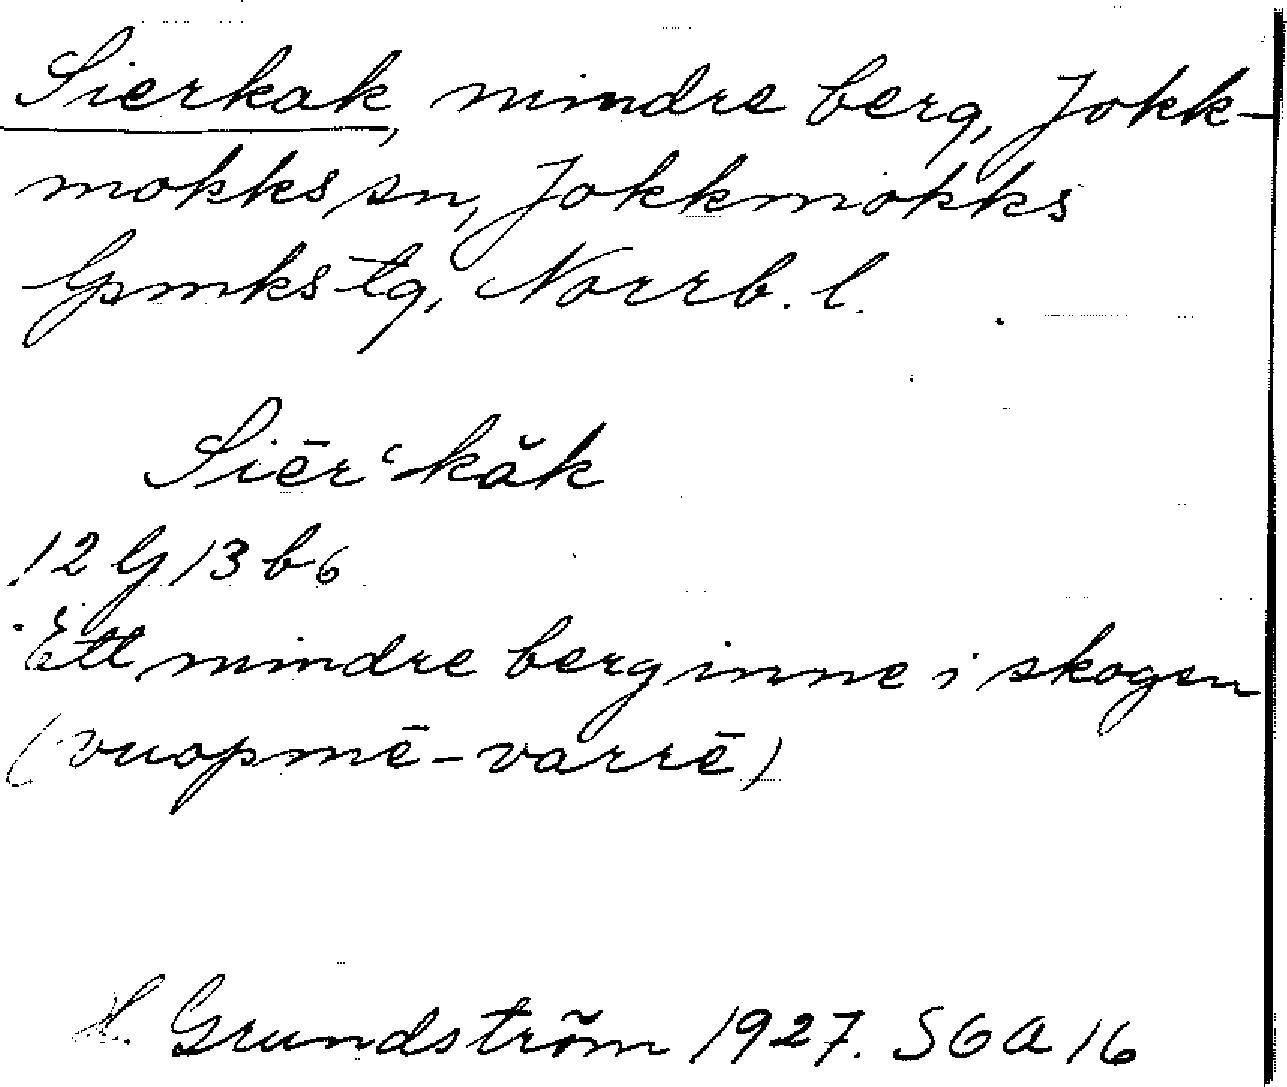 Sierkak, mindre berg, Jokk-
mokks sn, Jokkmokks
lpmks tg, Norrb. l.
Siērʿkăk
12 G 13 b 6
Ett mindre berg inne i skogen
(vuopmē-varrē)
H. Grundström 1927. SGA 16